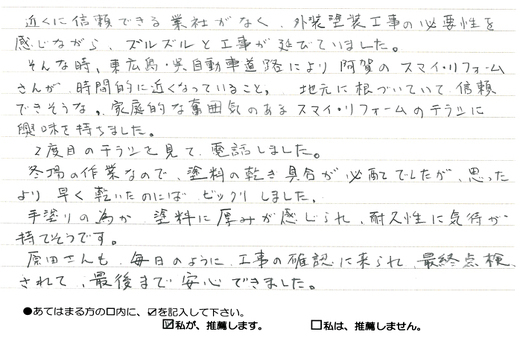 近くに信頼できる業社がなく、外装塗装工事の必要性を
感じながら、ズルズルと工事が延びていました。
そんな時、東広島・呉自動車道路により阿賀のスマイ・リフォーム
さんが、時間的に近くなっていること、地元に根づいていて信頼
できそうな、家庭的な雰囲気のあるスマイ・リフォームのチラシに
興味を持ちました。
2度目のチラシを見て、電話しました。
冬場の作業なので、塗料の乾き具合が心配でしたが、思った
より早く乾いたのには、ビックリしました。
手塗りの為か、塗料に厚みが感じられ、耐久性に気待が
持てそうです。
原田さんも、毎日のように、工事の確認に来られ、最終点検
されて、最後まで安心できました。
●あてはまる方の口内に、☑を記入して下さい。
☑私が、推薦します。 □私は、推薦しません。